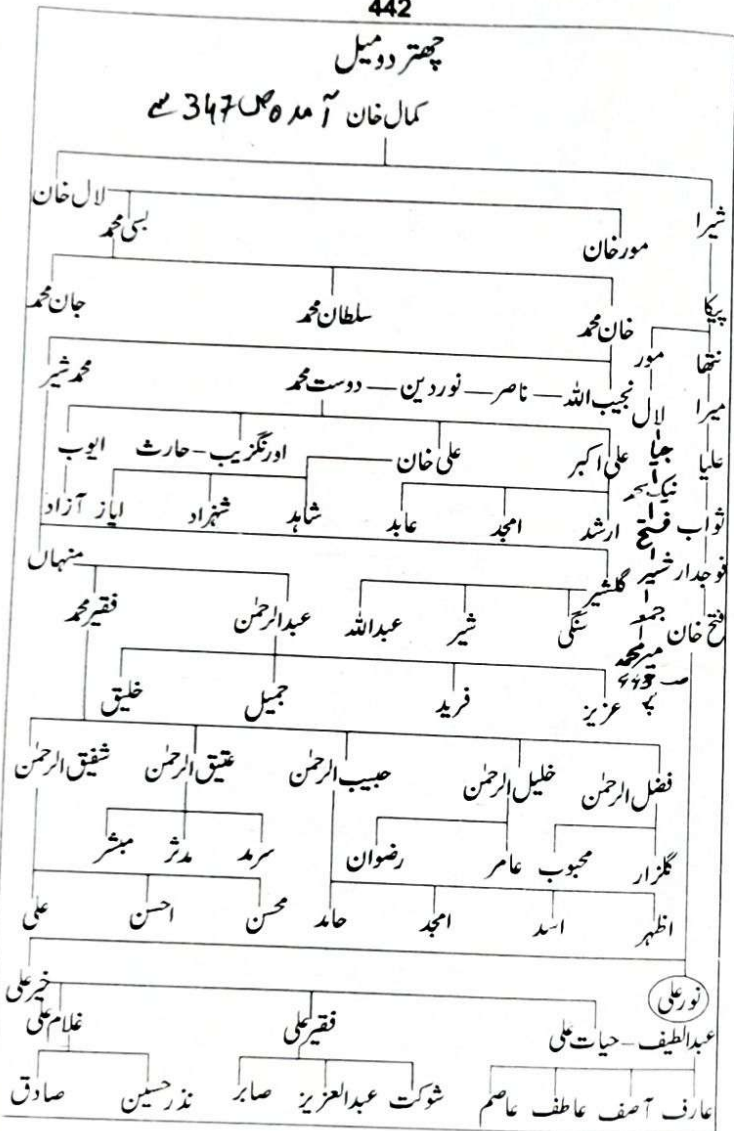 442
چھتر دومیل
کمال خان آمدہ ص 347 سے
شیرا لال خان
مور خان بسی محمد
پیکا خان محمد سلطان محمد جان محمد
نتھا مور
میرا لال نجیب اللہ – ناصر – نوردین – دوست محمد محمد شیر
علیا علی اکبر علی خان اورنگزیب – حارث ایوب
نیک محمد
ثواب فتح ارشد امجد عابد شاہد شہزاد ایاز آزاد
فوجدار شیر گلشیر منہاں
فتح خان جمعہ سنگی شیر عبداللہ عبدالرحمٰن فقیر محمد
میر محمد
ص 443 پر عزیز فرید جمیل خلیق
فضل الرحمٰن خلیل الرحمٰن حبیب الرحمٰن عتیق الرحمٰن شفیق الرحمٰن
گلزار محبوب عامر رضوان سرمد مدثر مبشر
اظہر اسد امجد حامد محسن احسن علی
نور علی خیر علی
عبدالطیف – حیات علی فقیر علی غلام علی
عارف آصف عاطف عاصم شوکت عبدالعزیز صابر نذر حسین صادق